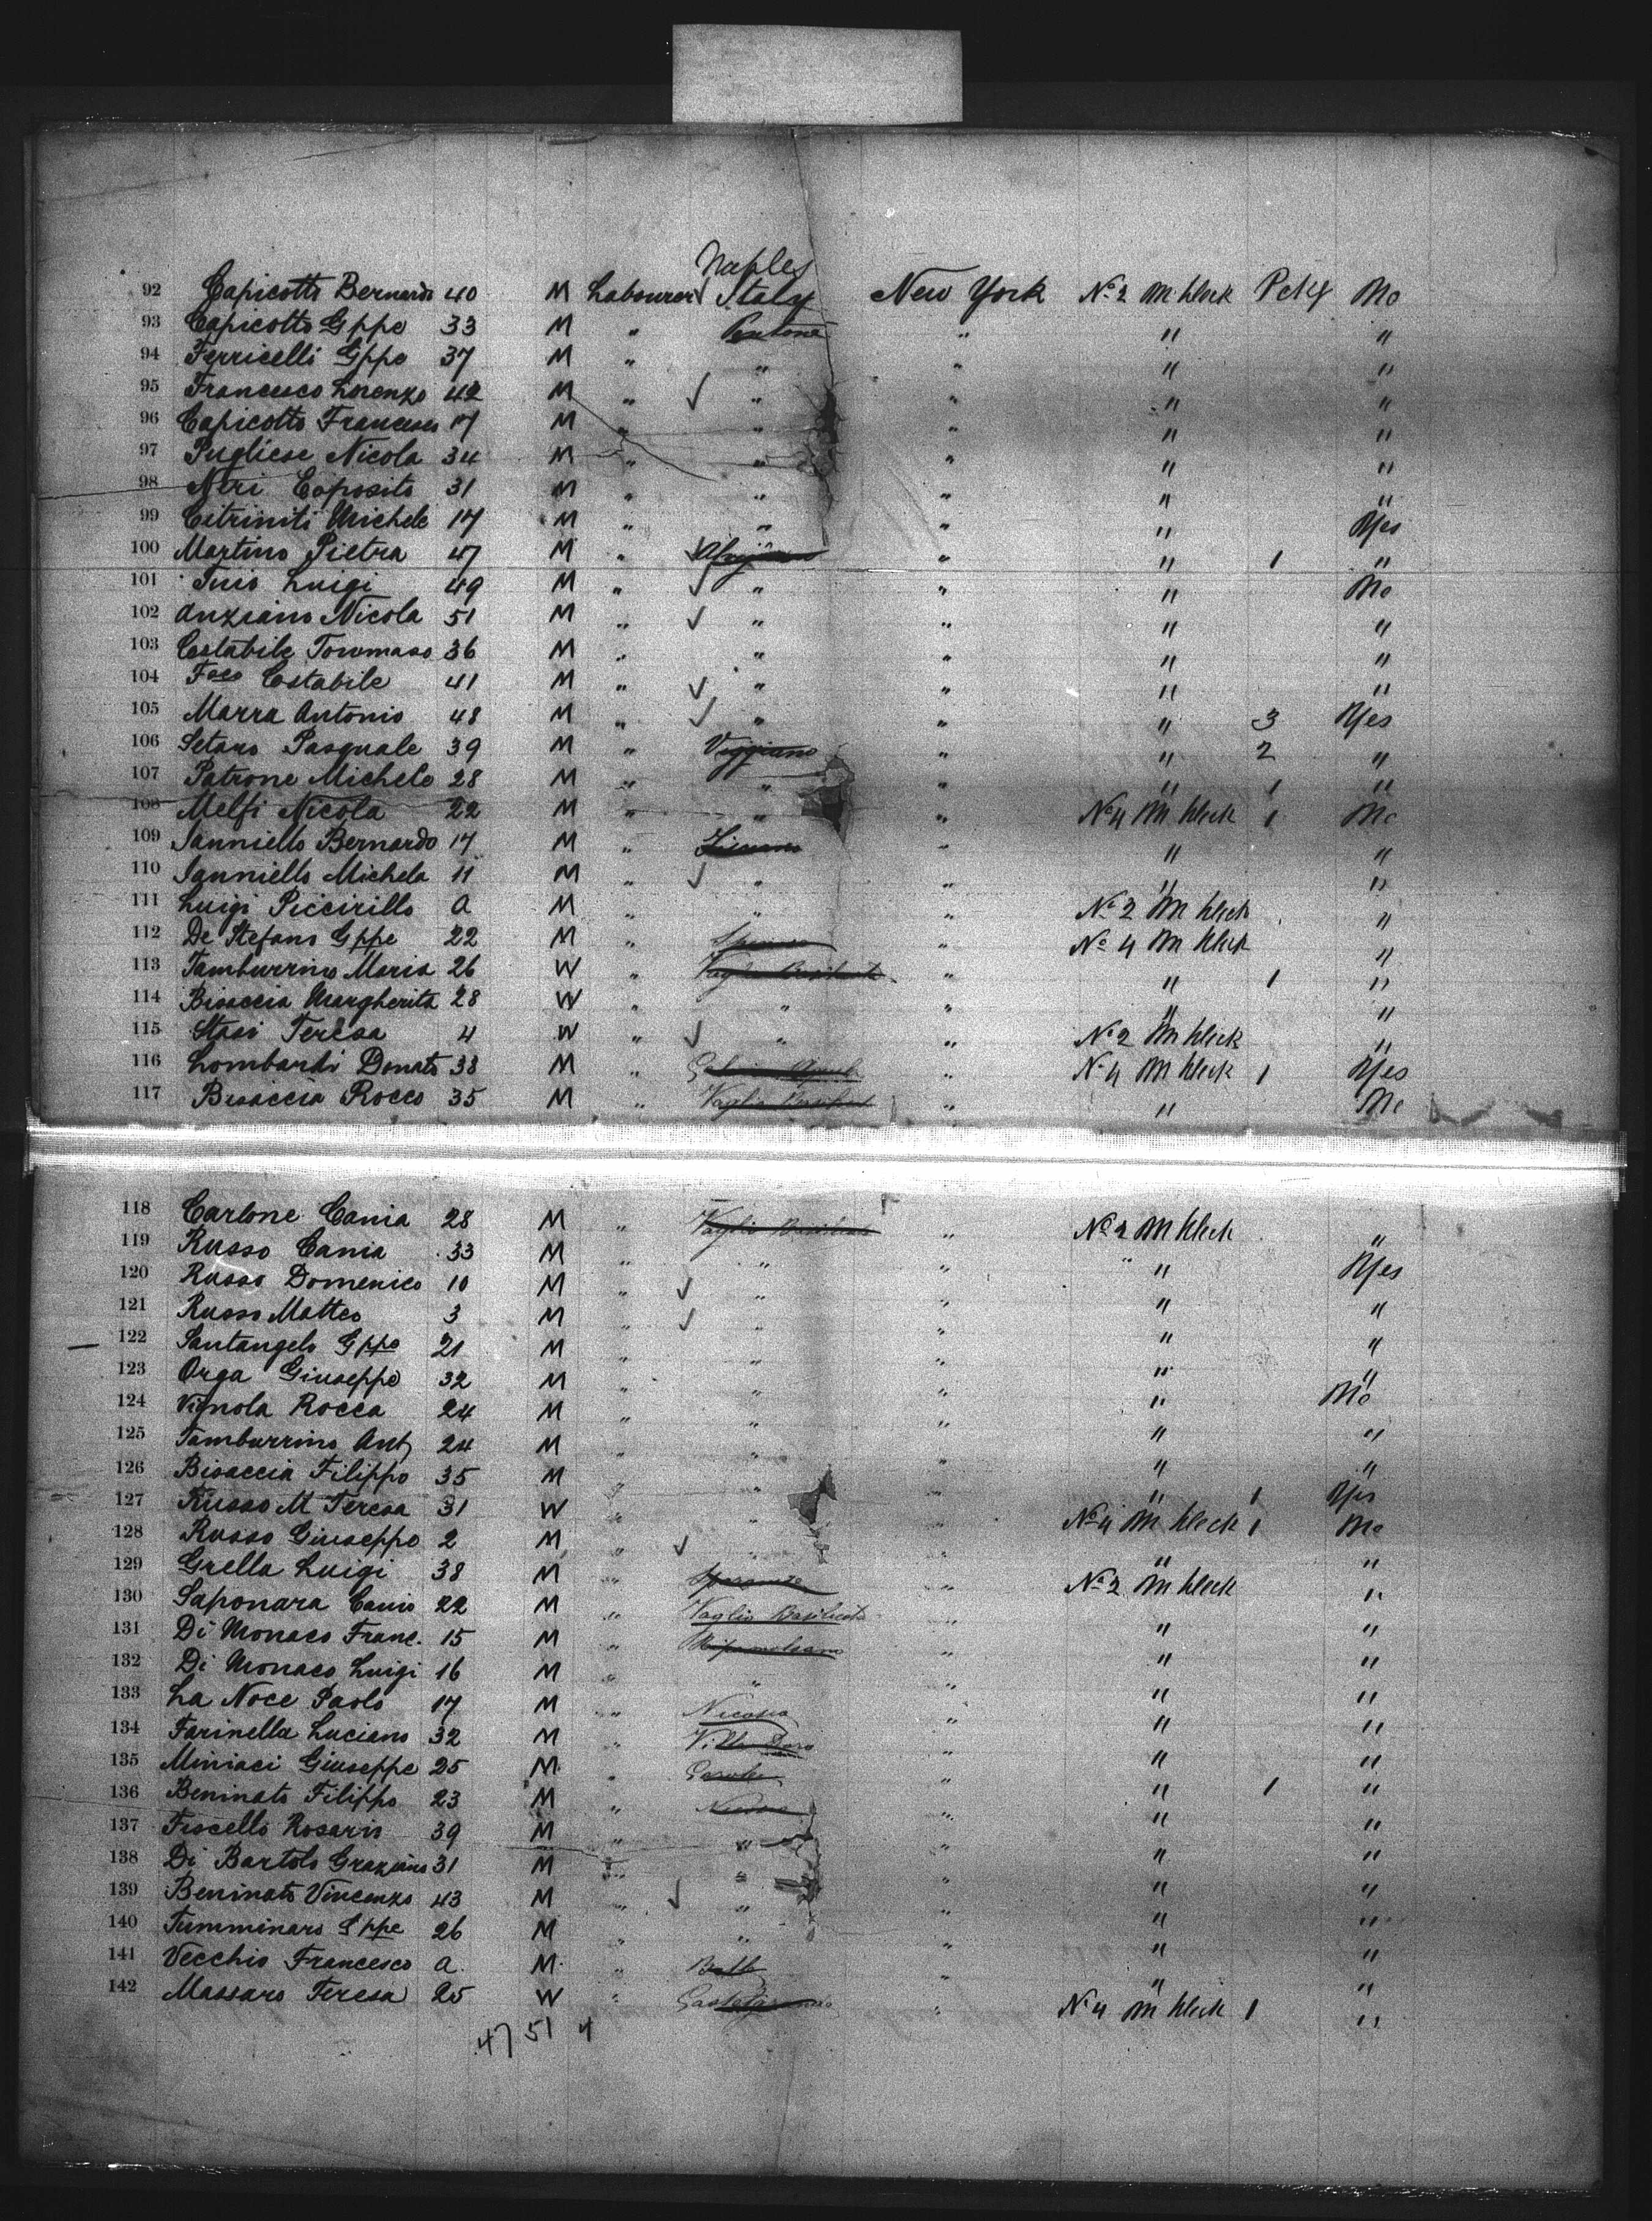 Naples
92 Capicotto Bernardo 40 M Labourer √ Italy New York No 2 M kleck Pckg No
93 Capicotto Gppe 33 M " Pentone " " "
94 Ferricelli Gppe 37 M " " " " "
95 Francesco Lorenzo 42 M " √ " " " "
96 Capicotto Francesco 17 M " " " " "
97 Pugliese Nicola 34 M " " " " "
98 Neri Esposito 31 M " " " " "
99 Citriniti Michele 17 M " " " " Yes
100 Martino Pietra 47 M " √ " " 1 "
101 Tuis Luigi 49 M " √ " " " No
102 Anziano Nicola 51 M " √ " " " "
103 Costabile Tommaso 36 M " " " " "
104 Fsco Costabile 41 M " √ " " " "
105 Marra Antonio 48 M " √ " " " 3 Yes
106 Setaro Pasquale 39 M " Viggiano " " 2 "
107 Patrone Michele 28 M " " " " 1 "
108 Melfi Nicola 22 M " " " No 4 M kleck 1 No
109 Ianniello Bernardo 17 M " " " "
110 Ianniello Michela 11 M " √ " " " "
111 Luigi Piccirillo a M " " " No 2 M kleck "
112 De Stefano Gppe 22 M " " No 4 M kleck "
113 Tamburrino Maria 26 W " Vaglio Basilicata " " 1 "
114 Bisaccia Margherita 28 W " " " "
115 Stasi Teresa 4 W " √ " " No 2 M kleck "
116 Lombardi Donato 38 M " " No 4 M kleck 1 Yes
117 Bisaccia Rocco 35 M " Vaglio Basilicata " " No
118 Carlone Cania 28 M " Vaglio Basilicata " No 2 M kleck "
119 Russo Cania 33 M " " " " Yes
120 Russo Domenico 10 M " √ " " " "
121 Russo Matteo 3 M " √ " " " "
122 Santangelo Gppe 21 M " " " " "
123 Orga Giuseppe 32 M " " " " "
124 Vignola Rocca 24 M " " " " No
125 Tamburrino Ant 24 M " " " " "
126 Bisaccia Filippo 35 M " " " " "
127 Russo M Teresa 31 W " " " " 1 Yes
128 Russo Giuseppe 2 M " √ " " No 4 M kleck 1 No
129 Grella Luigi 38 M " " " "
130 Saponara Canio 22 M " Vaglio Basilicata " No 2 M kleck "
131 Di Monaco Franc. 15 M " Ripamolisano " " "
132 Di Monaco Luigi 16 M " " " " "
133 La Noce Paolo 17 M " Nicosia " " "
134 Farinella Luciano 32 M " Villa Doro " " "
135 Miniaci Giuseppe 25 M " " " "
136 Beninato Filippo 23 M " Nicosia " " 1 "
137 Fiscello Rosario 39 M " " " " "
138 Di Bartolo Graziano 31 M " " " " "
139 Beninato Vincenzo 43 M " √ " " " "
140 Tumminaro Gppe 26 M " " " " "
141 Vecchio Francesco a M " " " "
142 Massaro Teresa 25 W " " No 4 M kleck 1 "
47 51 4